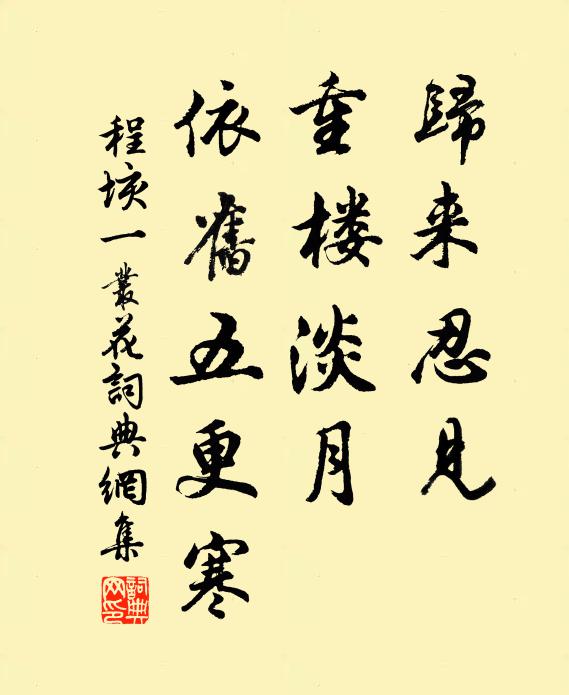 歸来忍見
重楼淡月
依舊五更寒
程垓一叢花詞典網集
詞典網印